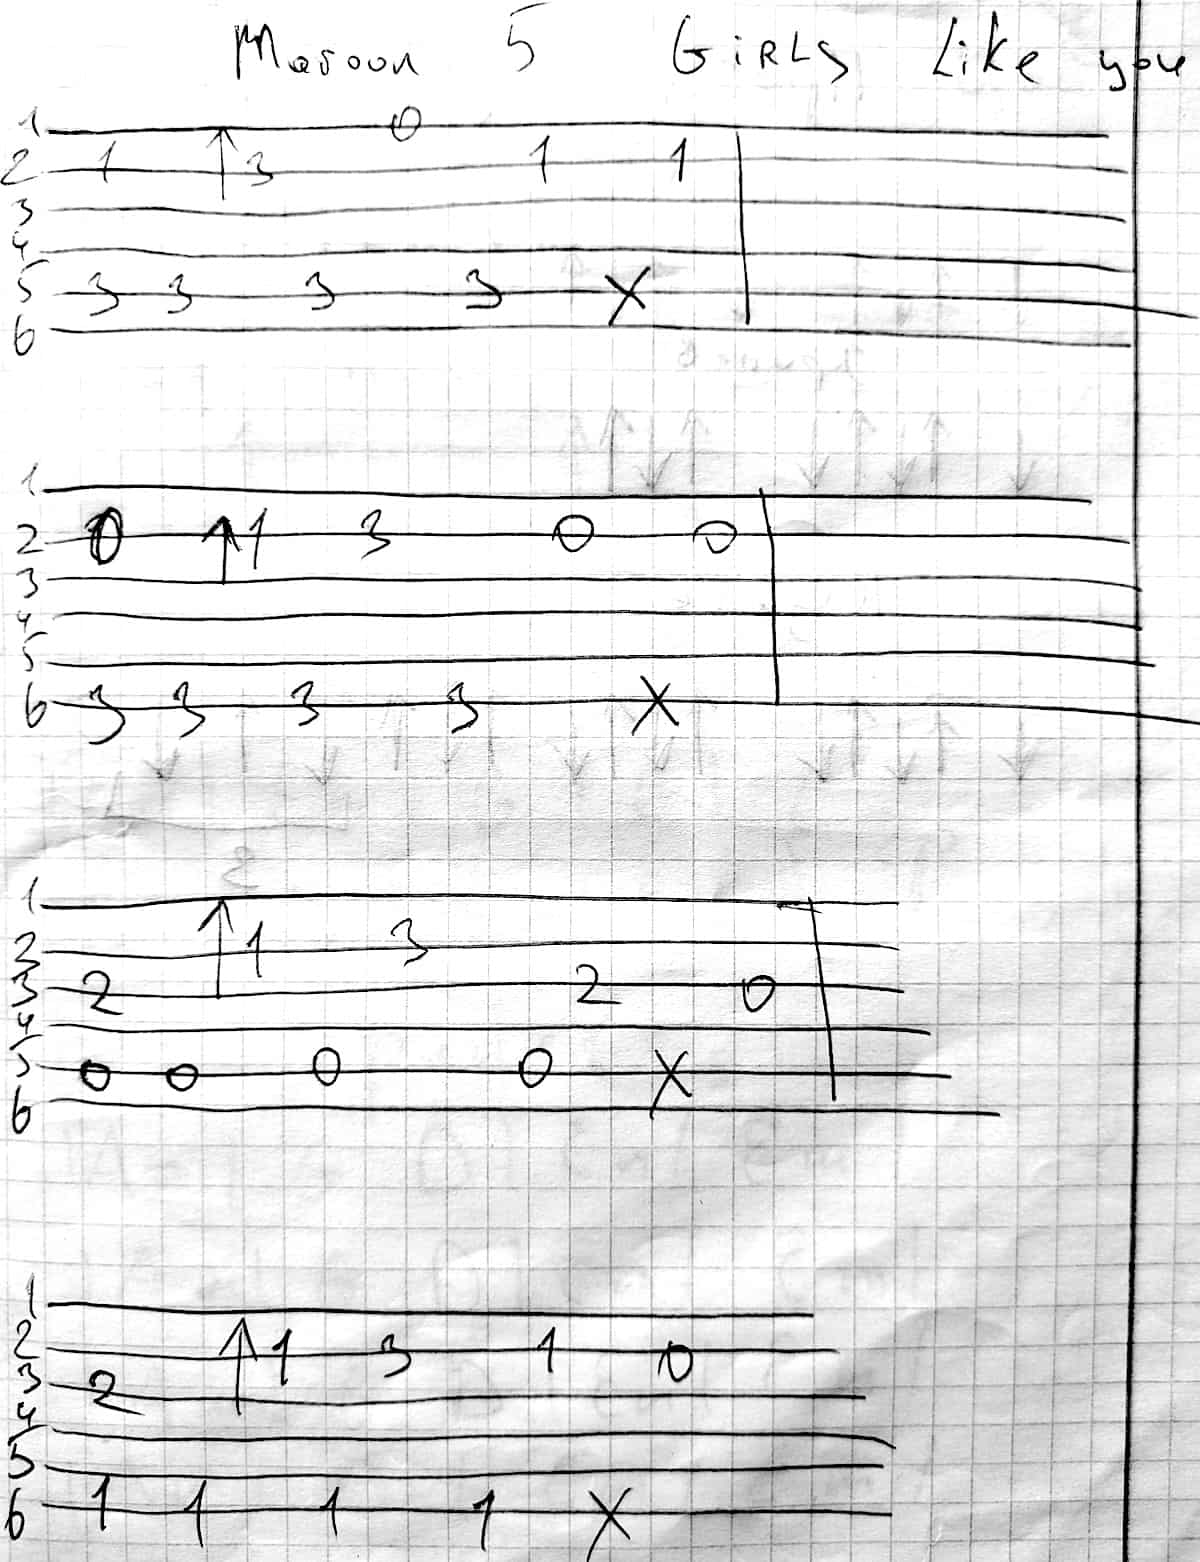 Maroon 5 GiRLS Like you
1 0
2 1 ↑ 3 1 1
3
4
5 3 3 3 3 X
6
1
2 0 ↑ 1 3 0 0
3
4
5
6 3 3 3 3 X
1
2 ↑ 1 3
3 2 2 0
4
5 0 0 0 0 X
6
1
2 ↑ 1 3 1 0
3 2
4
5
6 1 1 1 1 X